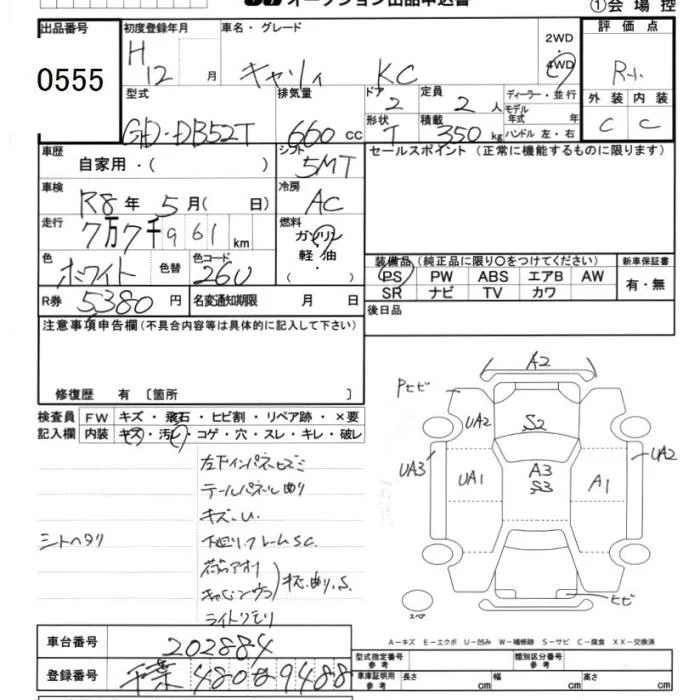 オークション出品申込書
①会場控
出品番号
0555
初度登録年月
H 12 月
車名・グレード
キャリィ KC
2WD
・
4WD
評価点
R-1
型式
GD-DB52T
排気量
660 cc
ドア
2
形状
T
定員
2 人
積載
350 kg
ディーラー・並行
モデル
年式 年
ハンドル 左・右
外装 内装
C C
車歴
自家用・( )
シフト
5MT
セールスポイント (正常に機能するものに限ります)
車検
R8 年 5 月( 日)
冷房
AC
走行
7万7千961 km
燃料
ガソリン
軽・油
( ・ )
色
ホワイト
色替
色コード
26U
装備品 (純正品に限り○をつけてください)
PS PW ABS エアB AW
SR ナビ TV カワ
新車保証書
有・無
R券 5380 円
名変通知期限 月 日
後日品
注意事項申告欄 (不具合内容等は具体的に記入して下さい)
修復歴 有 〔箇所 〕
検査員
記入欄
FW キズ・飛石・ヒビ割・リペア跡・×要
内装 キズ・汚レ・コゲ・穴・スレ・キレ・破レ
左下インパネヒズミ
テールパネル曲り
キズ、U.
シートヘタリ
下廻り、フレームSC.
荷台アオリ
キャビンウラ
キズ、曲り、S.
ライトクモリ
A2
Pヒビ
UA2
S2
UA3
UA1
A3
S3
A1
UA2
ヒビ
スペア
A-キズ E-エクボ U-凹み W-補修跡 S-サビ C-腐食 XX-交換済
車台番号 202884
登録番号 千葉 480 9488
型式指定番号
参考
類別区分番号
参考
車庫証明用
参考
長さ cm
幅 cm
高さ cm